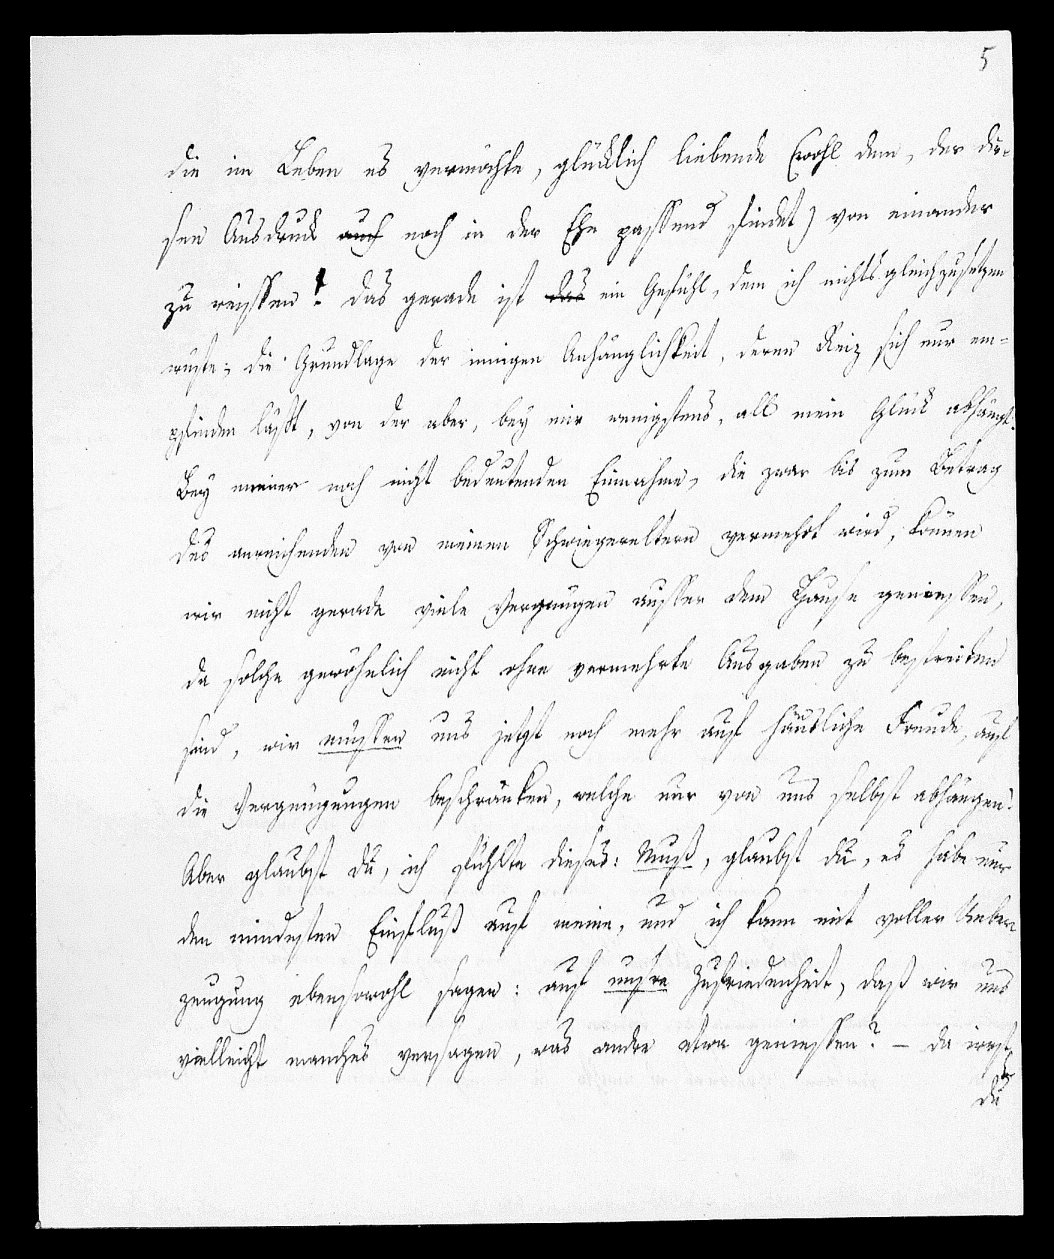 5
die im Leben es vermöchte, glücklich liebende (wohl dem, der die-
sen Ausdruck auch noch in der Ehe passend findet) von einander
zu reissen! Das gerade ist das ein Gefühl, dem ich nichts gleichzusetzen
wüste; die Grundlage der innigen Anhänglichkeit, deren Reiz sich nur em-
pfinden läßt, von der aber, bey mir wenigstens, all mein Glück abhängt.
Bey meiner noch nicht bedeutenden Einnahme, die zwar bis zum Betrag
des anreichenden von meinen Schwiegereltern vermehrt wird, können
wir nicht gerade viele Vergnügen ausser dem Hause geniessen,
da solche gewöhnlich nicht ohne vermehrte Ausgaben zu bestreiten
sind, wir müssen uns jetzt noch mehr auf häusliche Freude, auf
die Vergnügungen beschränken, welche nur von uns selbst abhängen.
Aber glaubst du, ich fühlte dieses: Muß, glaubst du, es habe nur
den mindesten Einfluß auf meine, und ich kann mit voller Ueber-
zeugung ebensowohl sagen: auf unsre Zufriedenheit, daß wir uns
vielleicht manches versagen, was andre etwa geniessen? - da irrst
du